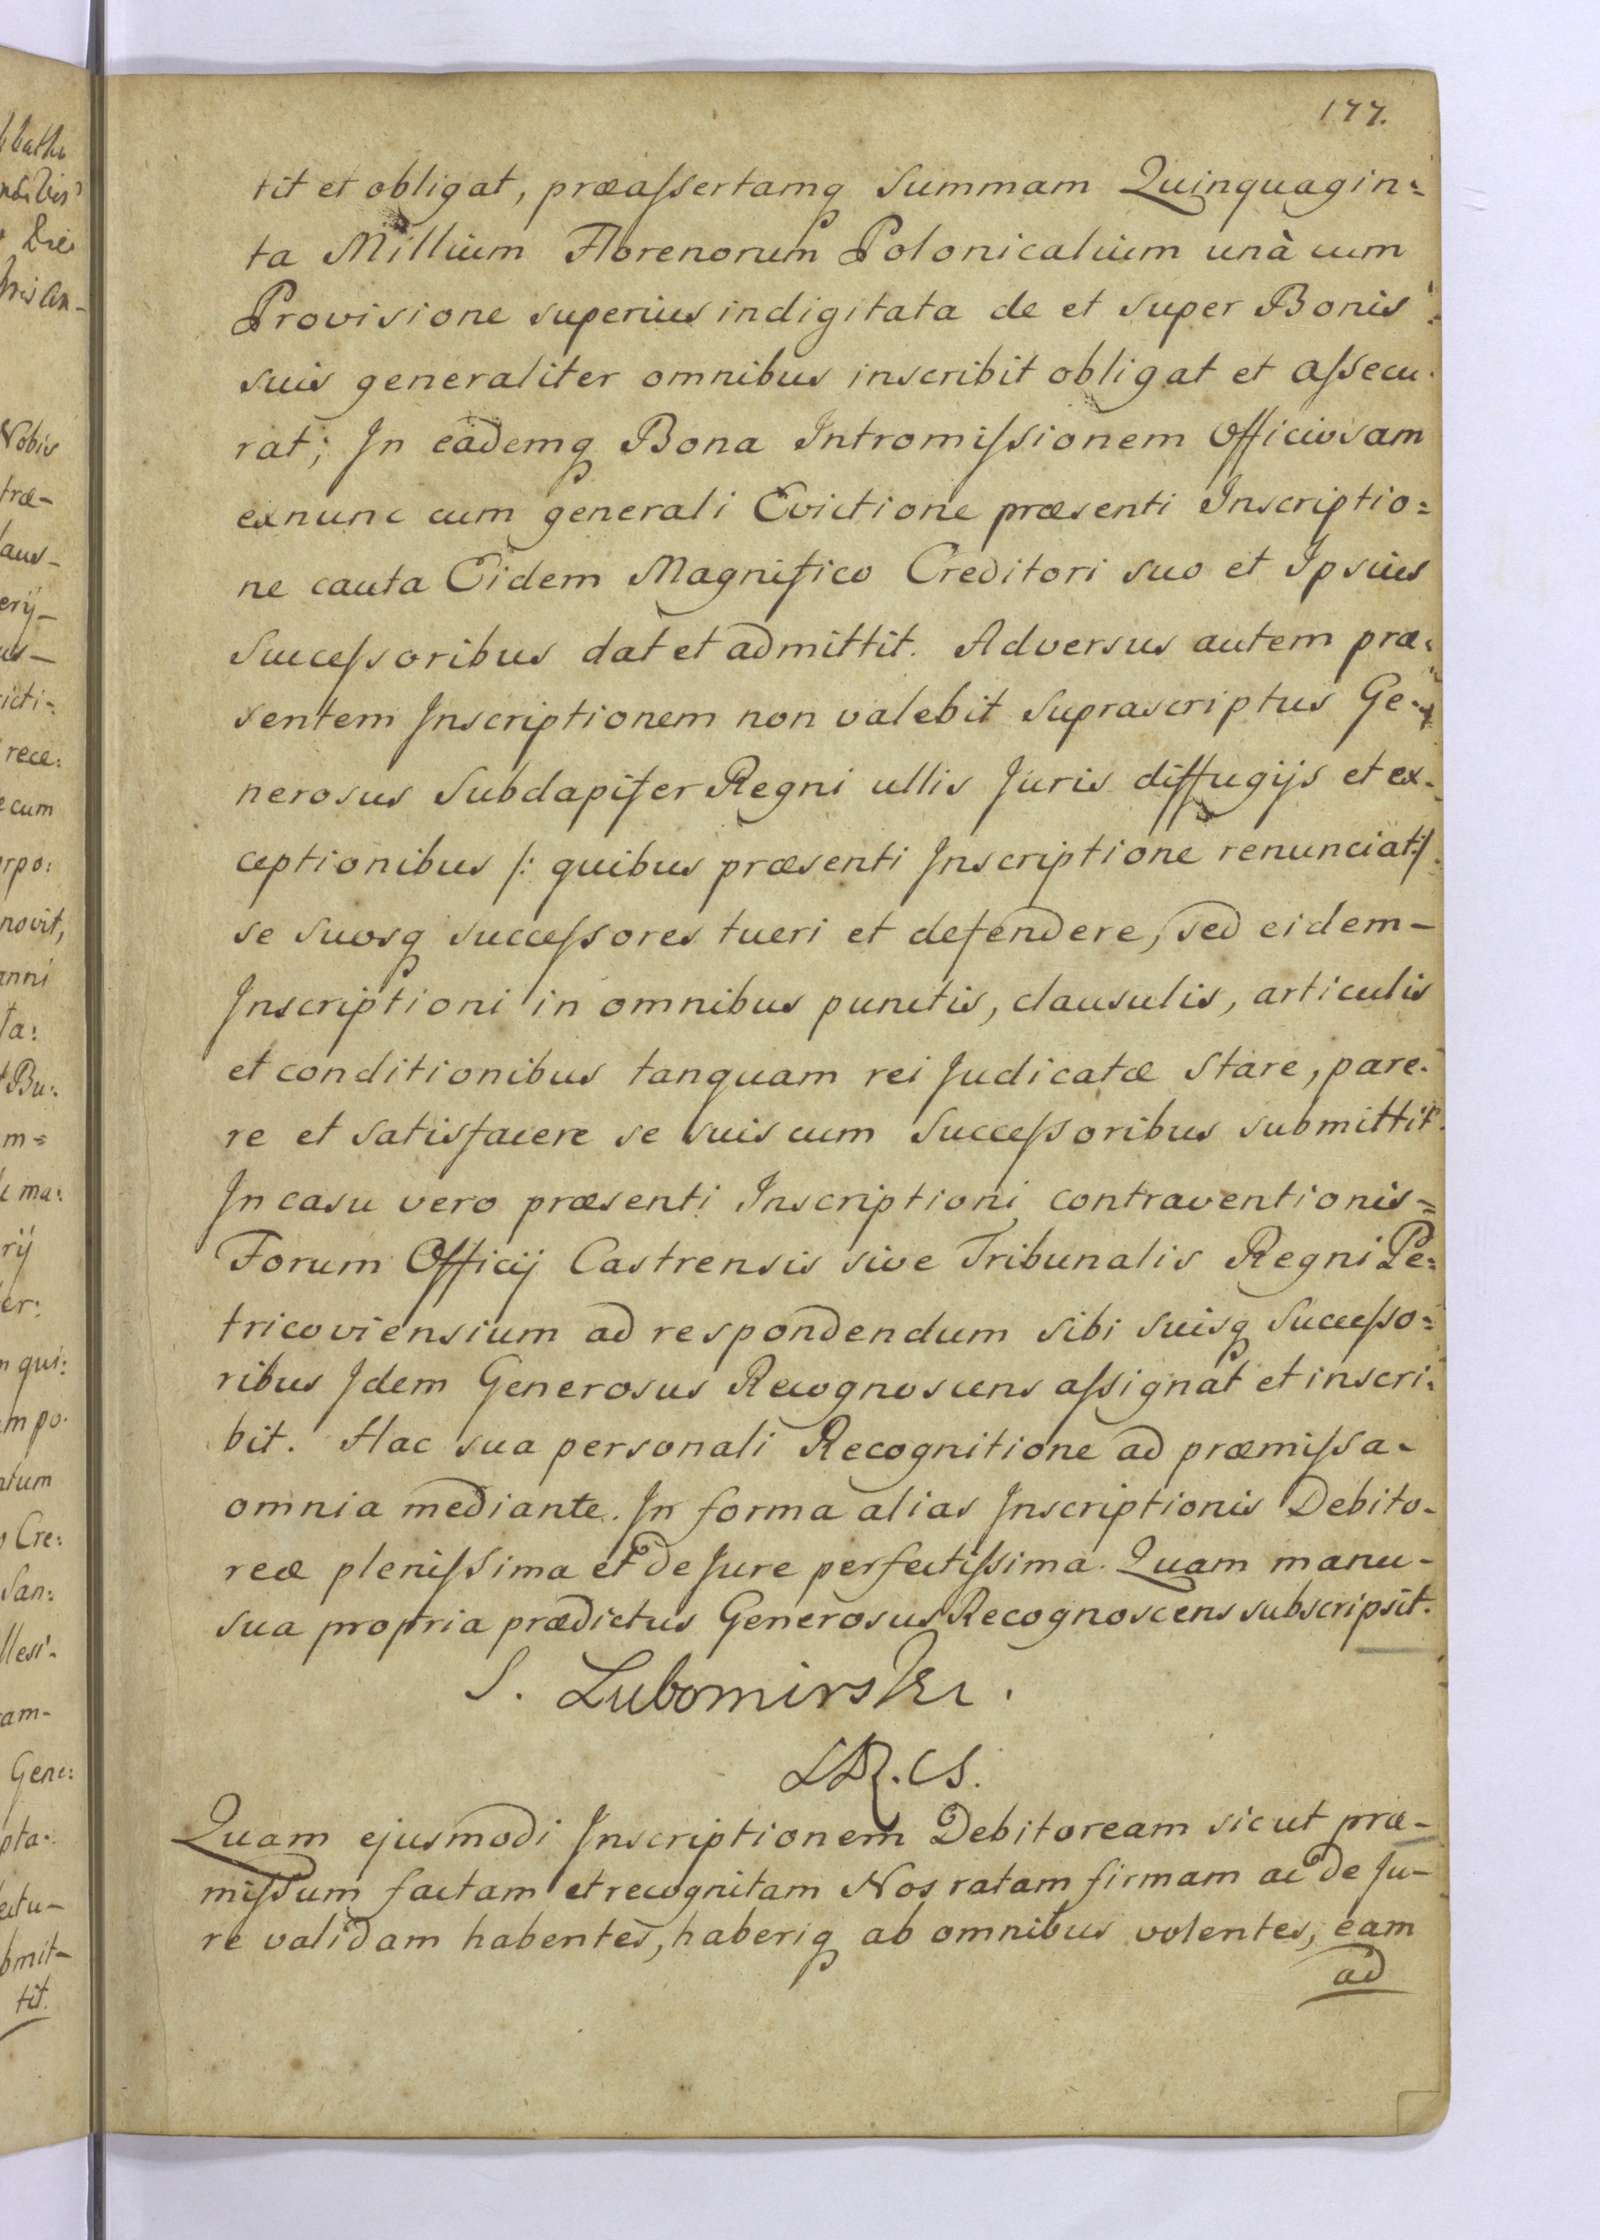 177.
tit et obligat, præassertamq Summam Quinquagin=
ta Millium Florenorum Polonicalium unà cum
Provisione superius indigitata de et super Bonis
suis generaliter omnibus inscribit obligat et assecu-
rat; In eademq Bona Intromissionem Officiosam
exnunc cum generali Evictione præsenti Inscriptio=
ne cauta Eidem Magnifico Creditori suo et Ipsius
Successoribus dat et admittit. Adversus autem præ-
sentem Inscriptionem non valebit Suprascriptus Ge-
nerosus Subdapifer Regni ullis Juris diffugijs et ex-
ceptionibus /: quibus præsenti Inscriptione renunciat :/
se suosq successores tueri et defendere, sed eidem-
Inscriptioni in omnibus punctis, clausulis, articulis
et conditionibus tanquam rei Judicatæ stare, pare-
re et satisfacere se suis cum Successoribus submittit.
In casu vero præsenti Inscriptioni contraventionis=
Forum Officij Castrensis sive Tribunalis Regni Pe=
tricoviensium ad respondendum sibi suisq Successo=
ribus Idem Generosus Recognoscens assignat et inscri-
bit. Hac sua personali Recognitione ad præmissa-
omnia mediante. In forma alias Inscriptionis Debito-
reæ plenissima et de Jure perfectissima. Quam manu-
sua propria prædictus Generosus Recognoscens subscripsit.
S. Lubomirski.
Quam ejusmodi Inscriptionem Debitoream sicut præ-
missum factam et recognitam Nos ratam firmam ac de Ju-
re validam habentes, haberiq ab omnibus volentes, eam
ad
Nobis
træ-
rece:
cum
anni
ta:
m=
rij
er:
Cre:
San:
am-
Gene:
tit.